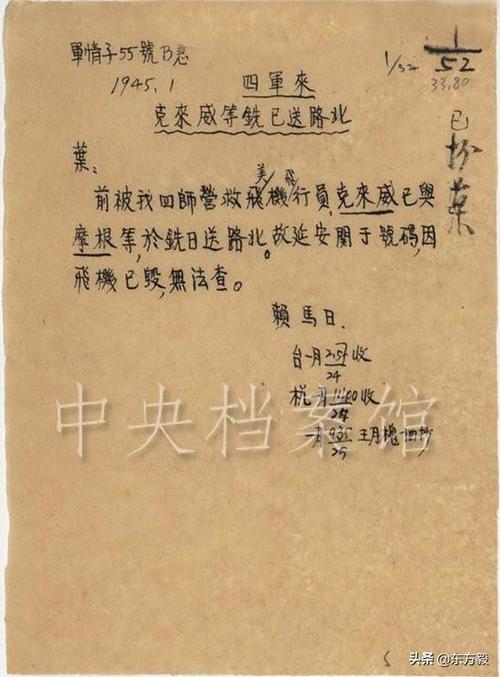 軍情子55號B急
1/52
1
52
33.80
1945.1
四軍來
克來威等銑已送路北
已抄葉
葉:
美飛
前被我四師營救飛機行員,克來威已與
摩根等,於銑日送路北。故延安關于號碼,因
飛機已毀,無法查。
賴馬日.
台一月 收
24
杭一月 收
24
一月935
25
中央档案馆
5
头条 @东方毅